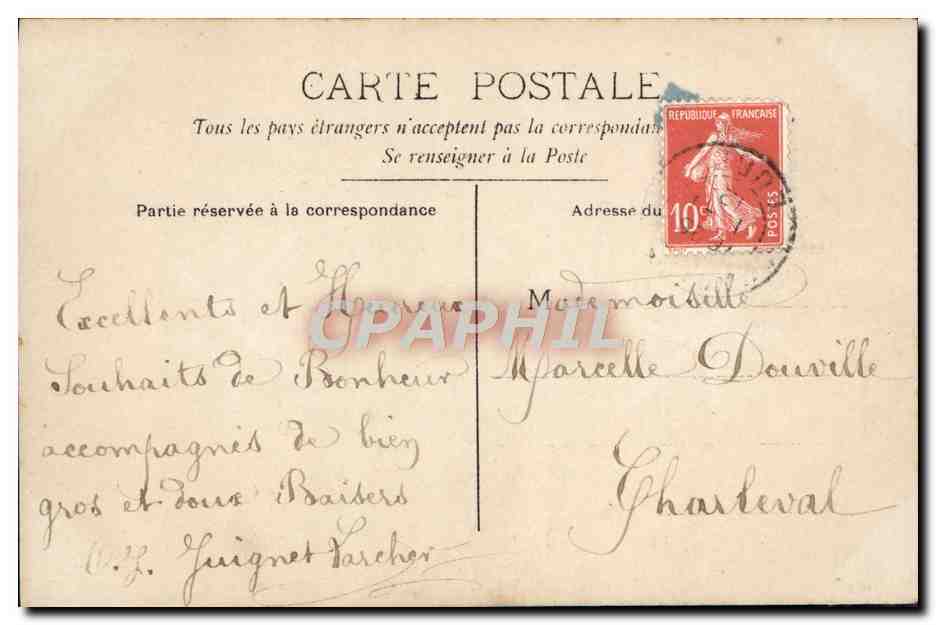 CARTE POSTALE
Tous les pays étrangers n'acceptent pas la correspondan
Se renseigner à la Poste
REPUBLIQUE FRANÇAISE
10c
POSTES
Partie réservée à la correspondance
Adresse du
Excellents et Heureux
Souhaits de Bonheur
accompagnés de bien
gros et doux Baisers
Guignet Larcher
Mademoiselle
Marcelle Douville
Charleval
CPAPHIL